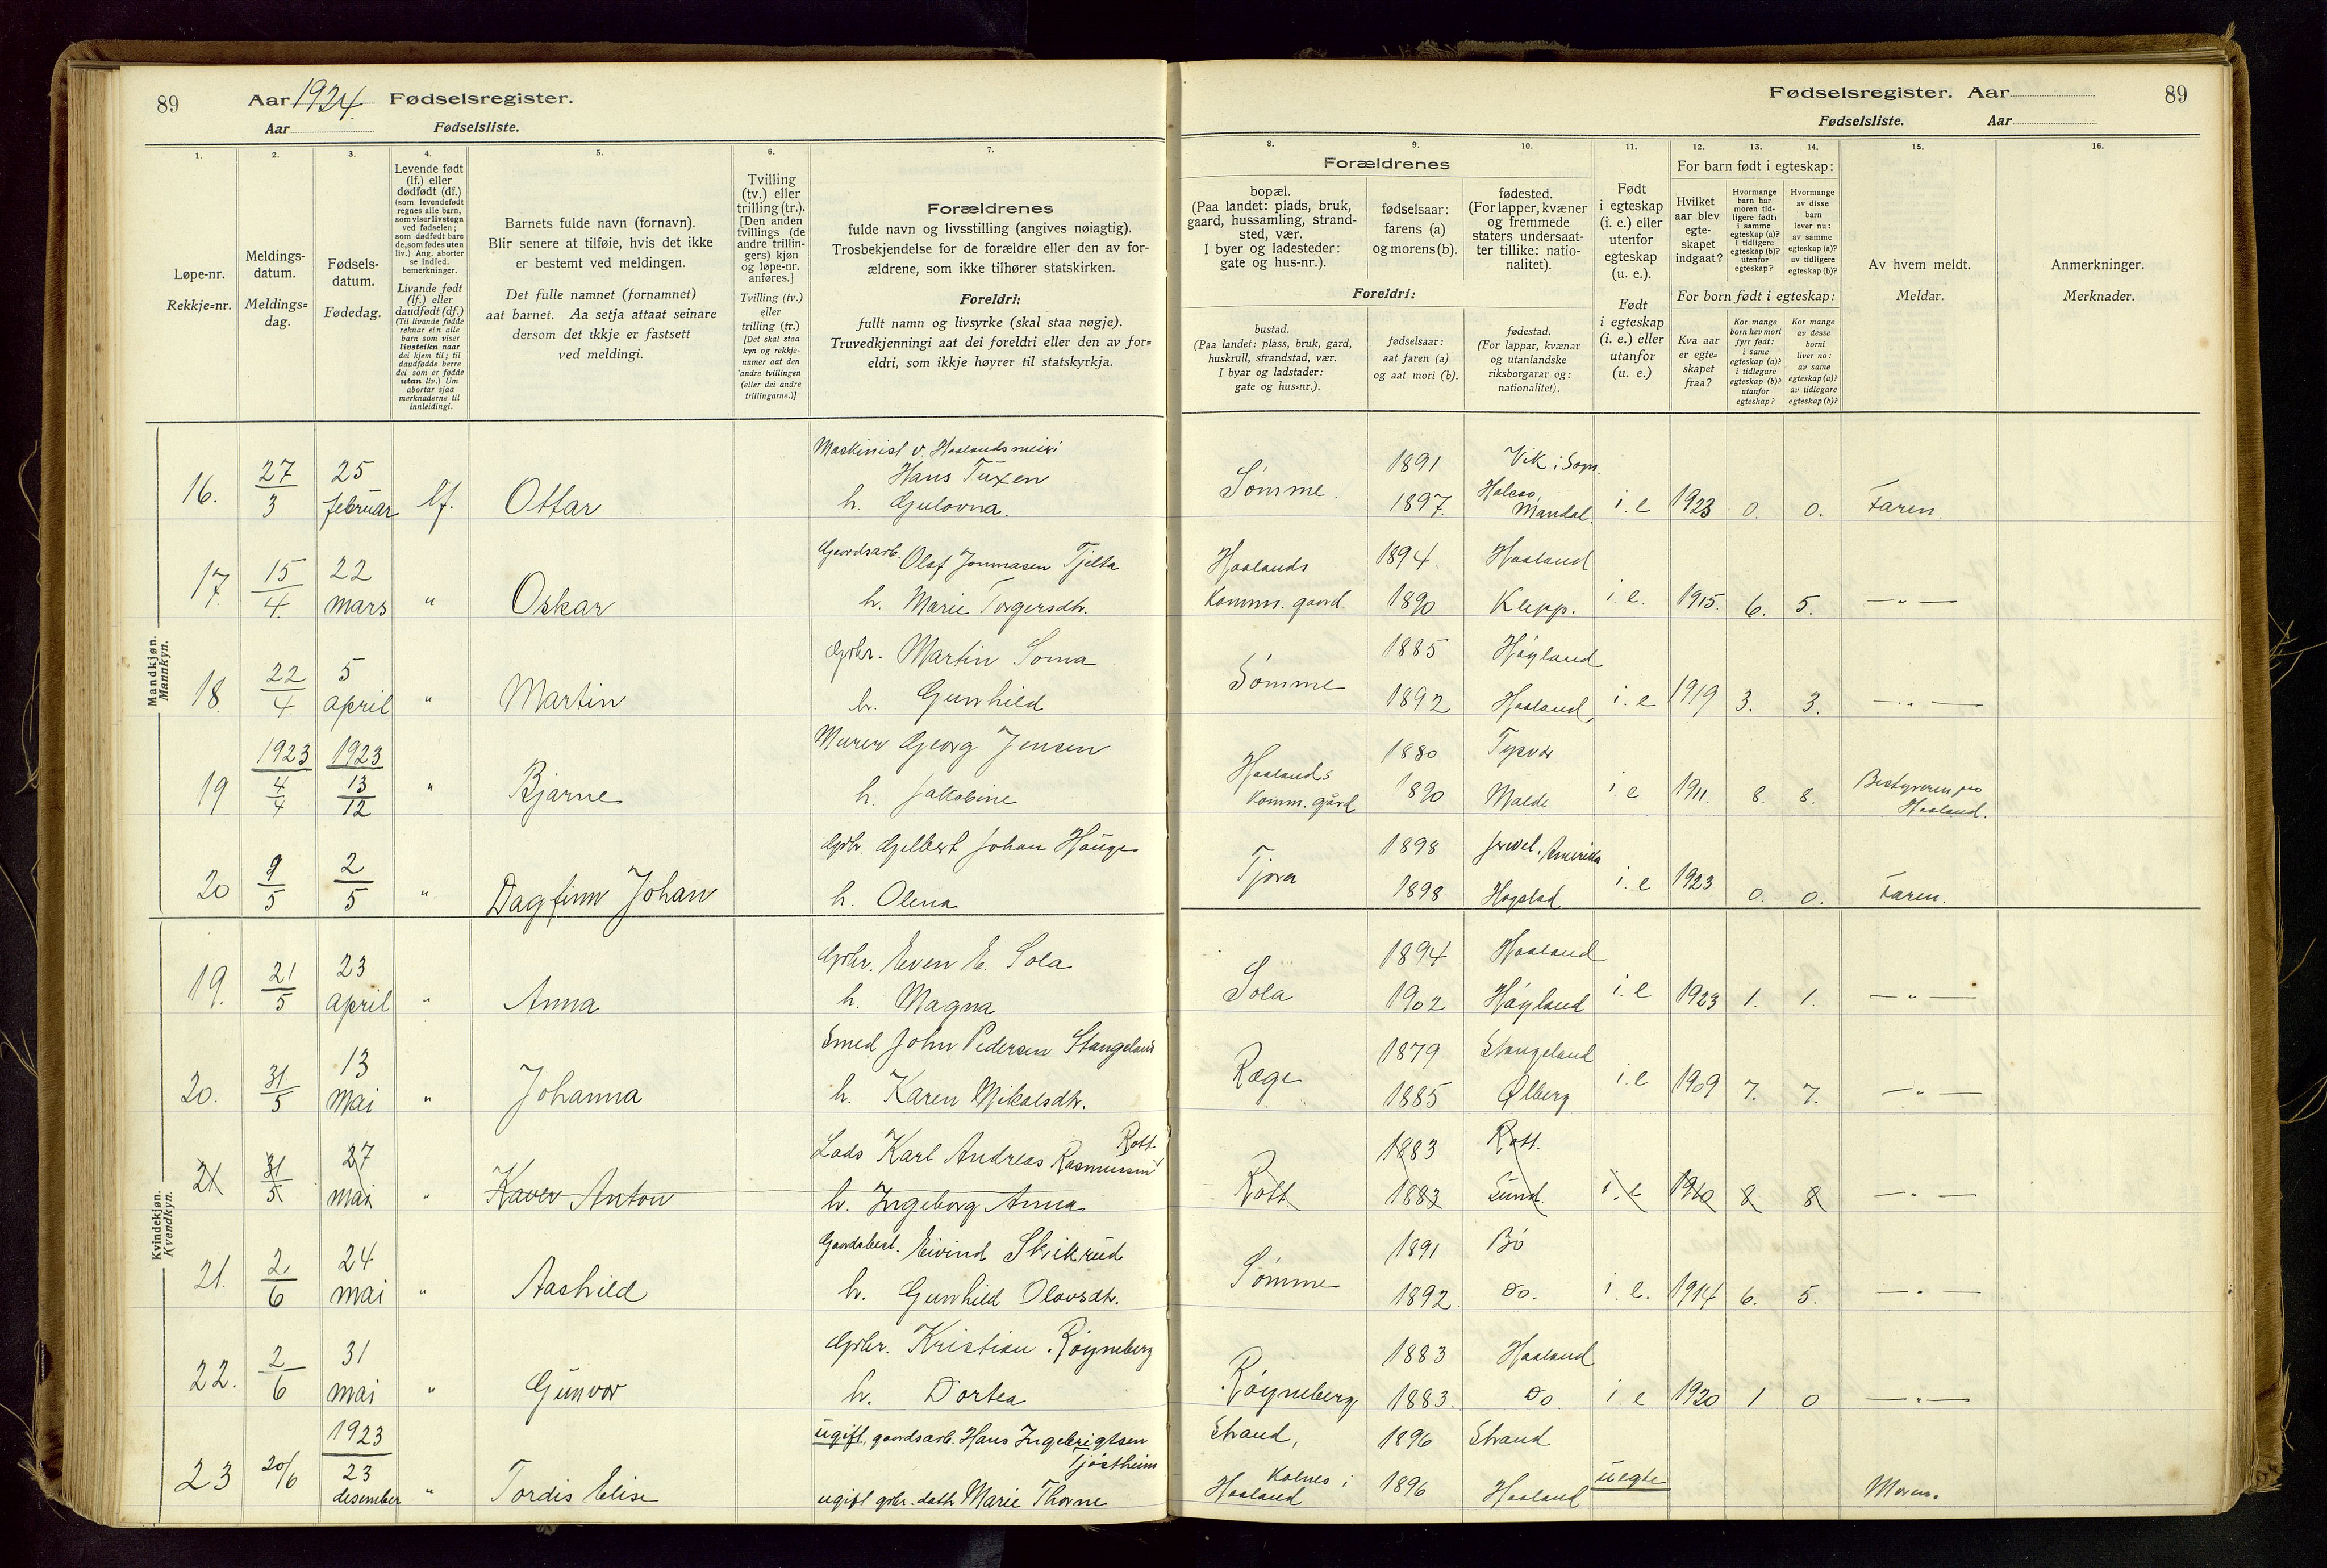 89
Aar 1924. Fødselsregister.
Aar
Fødselsliste.
Fødselsregister. Aar
89
Fødselsliste.
Aar
1.
2.
3.
4.
5.
6.
7.
8.
9.
10.
11.
12.
13.
14.
15.
16.
Løpe-nr.
Rekkje=nr.
Meldings-
datum.
Meldings=
dag.
Fødsels-
datum.
Fødedag.
Levende født
(lf.) eller
dødfødt (df.)
(som levendefødt
regnes alle barn,
som viser livstegn
ved fødselen;
som dødfødt bare
de, som fødes uten
liv.) Ang. aborter
se indled.
bemerkninger.
Livande født
(lf.) eller
daudfødt (df.)
(Til livande fødde
reknar ein alle
barn som viser
livsteikn naar
dei kjem til; til
daudfødde berre
dei som er fødde
utan liv.) Um
abortar sjaa
merknaderne til
innleidingi.
Barnets fulde navn (fornavn).
Blir senere at tilføie, hvis det ikke
er bestemt ved meldingen.
Det fulle namnet (fornamnet)
aat barnet. Aa setja attaat seinare
dersom det ikkje er fastsett
ved meldingi.
Tvilling
(tv.) eller
trilling (tr.).
[Den anden
tvillings (de
andre trillin-
gers) kjøn
og løpe-nr.
anføres.]
Tvilling (tv.)
eller
trilling (tr.)
[Det skal staa
kyn og rekkje-
numer aat den
andre tvillingen
(eller dei andre
trillingarne.)]
Forældrenes
fulde navn og livsstilling (angives nøiagtig).
Trosbekjendelse for de forældre eller den av for-
ældrene, som ikke tilhører statskirken.
Foreldri:
fullt namn og livsyrke (skal staa nøgje).
Truvedkjenningi aat dei foreldri eller den av for=
eldri, som ikkje høyrer til statskyrkja.
Forældrenes
bopæl.
(Paa landet: plads, bruk,
gaard, hussamling, strand-
sted, vær.
I byer og ladesteder:
gate og hus-nr.).
fødselsaar:
farens (a)
og morens (b).
fødested.
(For lapper, kvæner
og fremmede
staters undersaat-
ter tillike: natio-
nalitet).
Foreldri:
bustad.
(Paa landet: plass, bruk, gard,
huskrull, strandstad, vær.
I byar og ladstader:
gate og hus=nr.).
fødselsaar:
aat faren (a)
og aat mori (b).
fødestad.
(For lappar, kvænar
og utanlandske
riksborgarar og:
nationalitet).
Født
i egteskap
(i. e.) eller
utenfor
egteskap
(u. e.).
Født
i egteskap
(i. e.) eller
utanfor
(u. e.)
For barn født i egteskap:
Hvilket
aar blev
egte-
skapet
indgaat?
Hvormange
barn har
moren tid-
ligere født:
i samme
egteskap (a)?
i tidligere
egteskap (b)?
utenfor
egteskap?
Hvormange
av disse
barn
lever nu:
av samme
egteskap (a)?
av tidligere
egteskap (b)?
For born født i egteskap:
Kva aar
er egte=
skapet
fraa?
Kor mange
born hev mori
fyrr født:
i same
egteskap (a)?
i tidlegare
egteskap (b)?
utanfor
egteskap?
Kor mange
av desse
borni
liver no:
av same
egteskap (a)?
av tidlegare
egteskap (b)?
Av hvem meldt.
Meldar.
Anmerkninger.
Merknader.
Mandkjøn.
Mannkyn.
16. 27/3 25 februar lf. Ottar
Maskinist v. Haalandsmeieri
Hans Tuxen
h. Gulovna.
Sømme. 1891 Vik i Sogn.
1897. Mandal. i. e 1923 0. 0. Faren.
17. 15/4. 22 mars " Oskar
Gaardsarb. Olaf Jonnasen Tjelta
h. Marie Torgersdtr.
Haalands 1894. Haaland
Komm. gaard. 1890 Klepp. i. e. 1915. 6. 5. — " —
18. 22/4. 5 april " Martin
Gbr. Martin Soma
h. Gunhild
Sømme 1885 Høyland
1892 Haaland i. e 1919 3. 3. — " —
19 1923 4/4 1923 13/12 " Bjarne
Murer Georg Jensen
h. Jakobine
Haalands 1880 Tysvær
Komm. gård 1890 Malde i. e 1911. 8. 8. Bestyreren paa
Haaland.
20 9/5 2/5 " Dagfinn Johan
Gbr. Gjelbert Johan Hauge
h. Olena
Tjora 1898 Amerika
1898 Hogstad i. e 1923 0. 0. Faren.
Kvindekjøn.
Kvendkyn.
19. 21/5 23 april " Anna
Gbr. Even E. Sola
h. Magna
Sola 1894 Haaland
1902 Høyland i. e 1923 1. 1. — " —
20. 31/5 13 mai " Johanna
Smed John Pedersen Stangeland
h. Karen Mikalsdtr.
Ræge 1879 Stangeland
1885 Ølberg i. e 1909 7. 7. — " —
21 31/5 27 mai " Kaver Anton
Lods Karl Andreas Rasmussen Rott
h. Ingeborg Anna
Rott 1883 Rott.
1883 Sund. i. e 1910 8 8 — " —
21. 2/6 24 mai " Aashild
Gaardsbest. Eivind Skikrud
h. Gunhild Olavsdtr.
Sømme 1891 Bø
1892. Do. i. e. 1914 6. 5. — " —
22. 2/6 31 mai " Gunvor
Gbr. Kristian Røyneberg
h. Dortea
Røyneberg 1883 Haaland
1883. Do. i e 1920 1 0 — " —
23 20/6 1923 23 desember " Tordis Elise
ugift, gaardsarb. Hans Ingebrigtsen
Tjøstheim
ugift gbr. datter Marie Thorne
Strand, 1896 Strand
Kolnes i
Haaland 1896 Haaland uegte Moren.